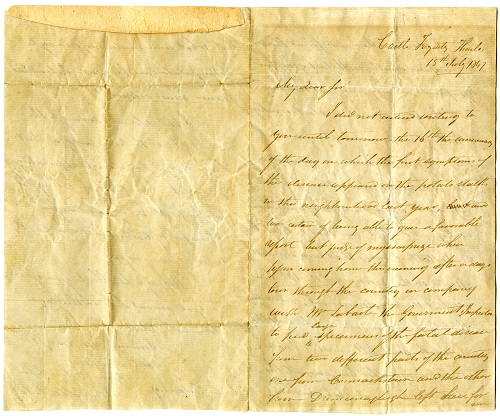 Castle Fogarty Thurles
15th July 1847
My dear Sir
I did not intend writing to
you until tomorrow the 16th the anniversary
of the day on which the first symptoms of
the disease appeared on the potato stalks
in this neighbourhood last year and
was certain of being able to give a favourable
report but judge of my surprize when
upon coming home this evening after a days
tour through the country in company
with Mr the Government Inspector
to find specimens of the potato disease
from two different parts of the country
one from and the other
from left here for